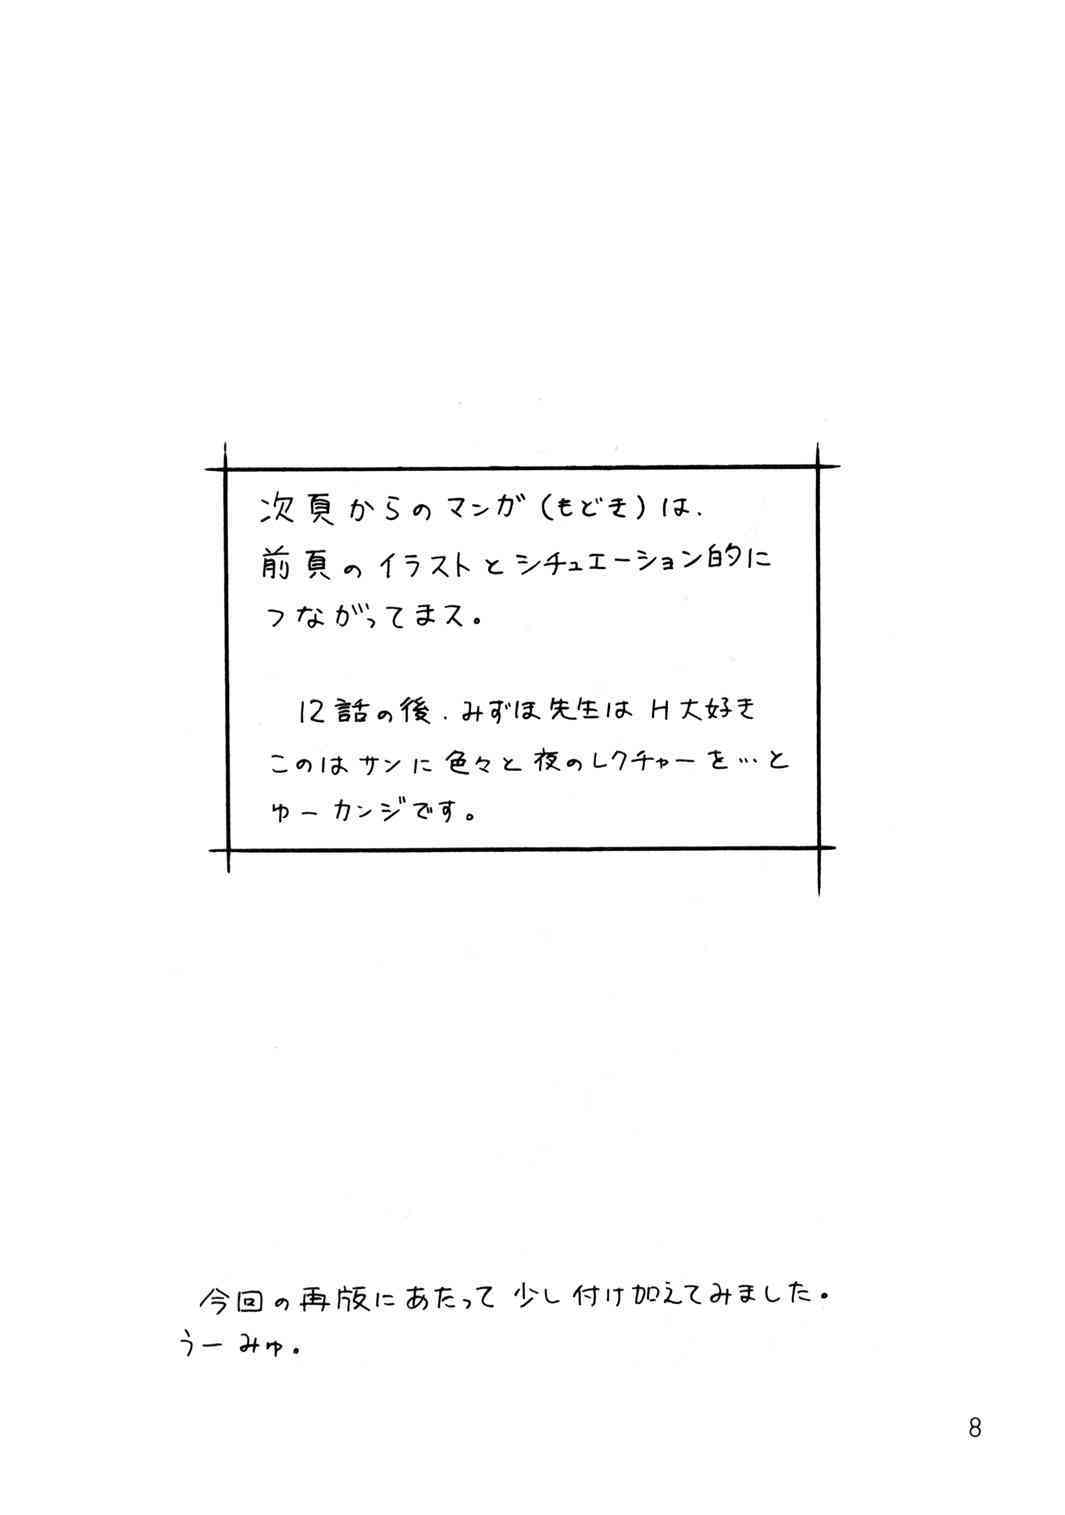 次頁からのマンガ(もどき)は、
前頁のイラストとシチュエーション的に
つながってまス。
12話の後、みずほ先生は H大好き
このはサンに色々と夜のレクチャーを…と
ゆーカンジです。
今回の再版にあたって少し付け加えてみました。
うーみゅ。
8